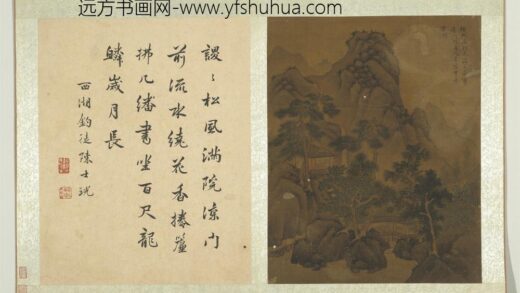 远方书画网. www.yfshuhua.com
謖〻松風滿院涼門
前流水繞花香捲簾
拂几繙書坐百尺龍
鱗歲月長
西湖釣徒陳士珫